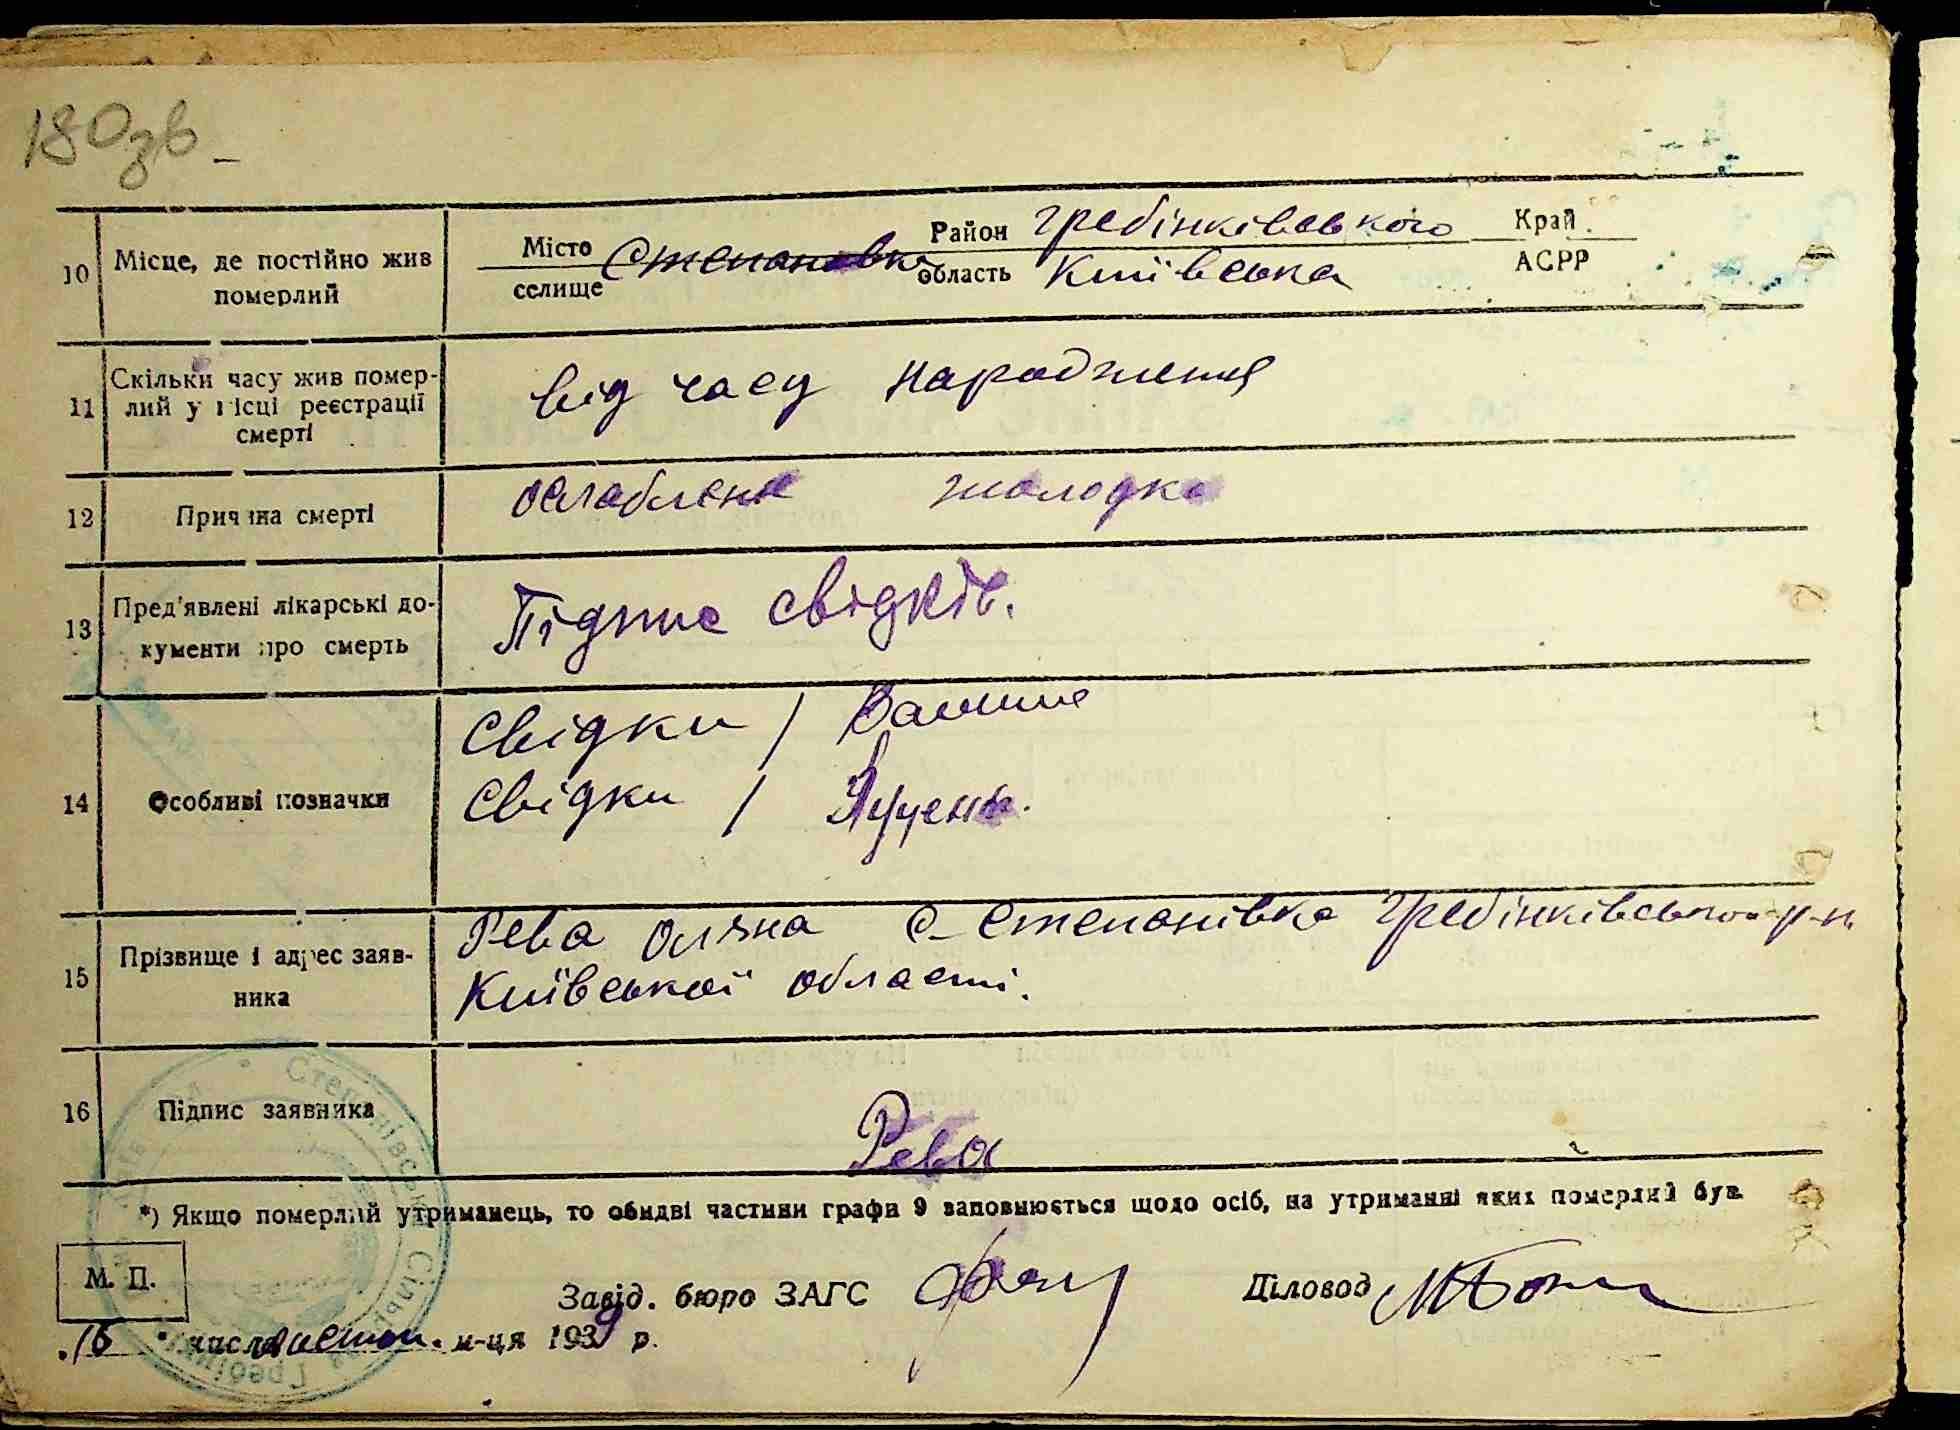 180зв
10 Місце, де постійно жив померлий
Місто селище Степановка Район Гребінківського Край
область Київська АСРР
11 Скільки часу жив помер-
лий у місці реєстрації
смерті
від часу народження
12 Причина смерті ослаблення жолодка
13 Пред'явлені лікарські до-
кументи про смерть
Підпис свідків.
14 Особливі позначки
Свідки /
Свідки /
15 Прізвище і адрес заяв-
ника
Рева Оляна с-Степанівка Гребінківського р-н.
Київської області.
16 Підпис заявника
Рева
*) Якщо померлий утриманець, то обидві частини графи 9 заповнюється щодо осіб, на утриманні яких померлий був.
М. П.
Завід. бюро ЗАГС
Діловод
15 числа листоп. м-ця 1939 р.